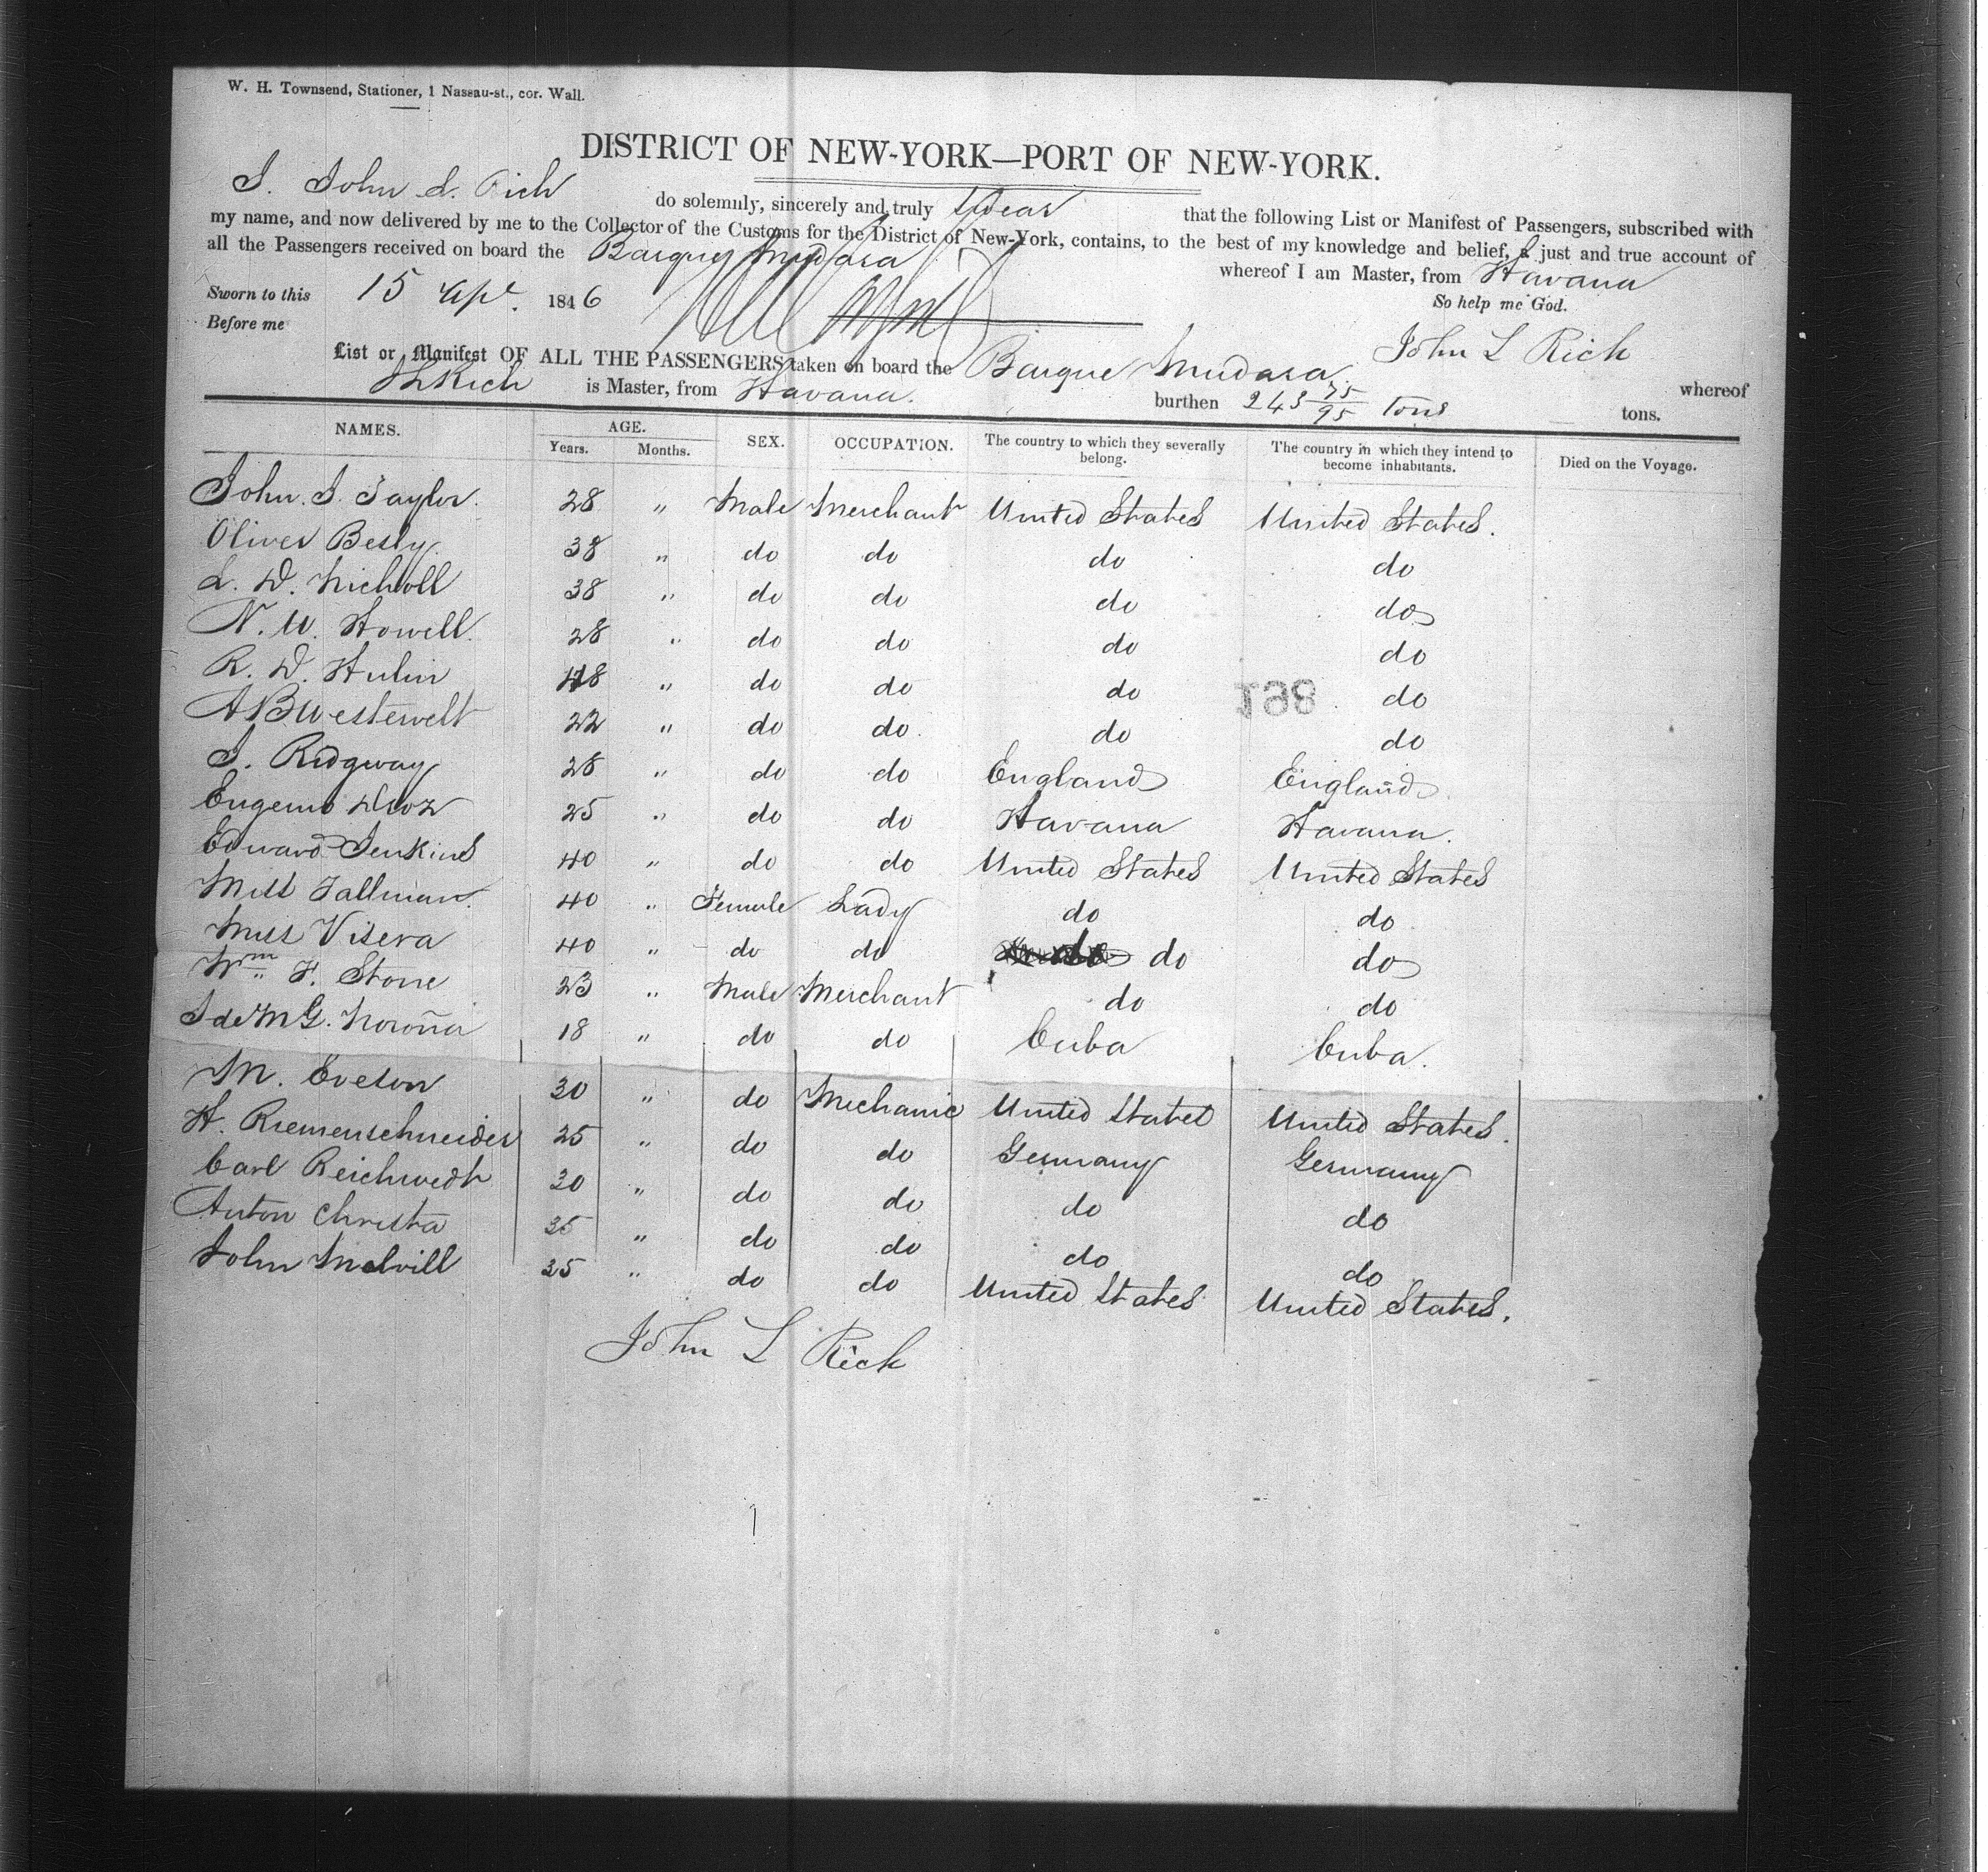 W. H. Townsend, Stationer, 1 Nassau-st., cor. Wall.
DISTRICT OF NEW-YORK—PORT OF NEW-YORK.
I. John L. Rich do solemnly, sincerely and truly Swear that the following List or Manifest of Passengers, subscribed with
my name, and now delivered by me to the Collector of the Customs for the District of New-York, contains, to the best of my knowledge and belief, a just and true account of
all the Passengers received on board the Barque whereof I am Master, from Havana
Sworn to this 15 Apl. 1846 So help me God.
Before me
John L Rich
List or Manifest OF ALL THE PASSENGERS taken on board the Barque whereof
J L Rich is Master, from Havana. burthen 243 75/95 tons tons.
NAMES. AGE. Years. Months. SEX. OCCUPATION. The country to which they severally belong. The country in which they intend to become inhabitants. Died on the Voyage.
John. J. Taylor. 28 " Male Merchant United States United States.
Oliver 38 " do do do do
L. D. Nicholl 38 " do do do do
N. W. Howell. 28 " do do do do
R. D. Hulin 48 " do do do do
198
A B Westervelt 22 " do do. do do
J. Ridgway 28 " do do England England
Eugenio 25 " do do Havana Havana.
Edward Jenkins 40 " do do United States United States
Tallman. 40 " Female Lady do do
Visera 40 " do do do do
Wm. F. Stone 23 " Male Merchant do do
J de M G. Noroña 18 " do do Cuba Cuba.
M. Eveton 30 " do Mechanic United States United States.
H. Riemenschneider 25 " do do Germany Germany
Carl 30 " do do do do
Anton Christa 35 " do do do do
John Melvill 35 " do do United States United States.
John L Rich